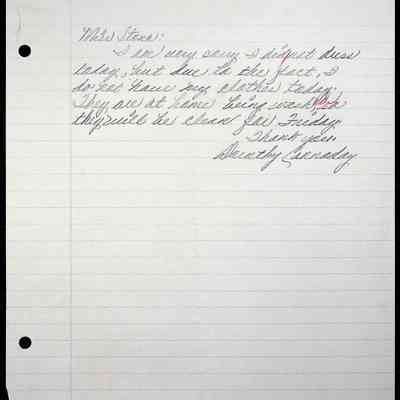 Miss Stone:
I am very sorry I did not dress
today, but due to the fact, I
do not have my clothes today.
They are at home being wash, so
they will be clean for Friday
Thank you,
Dorothy Cannaday